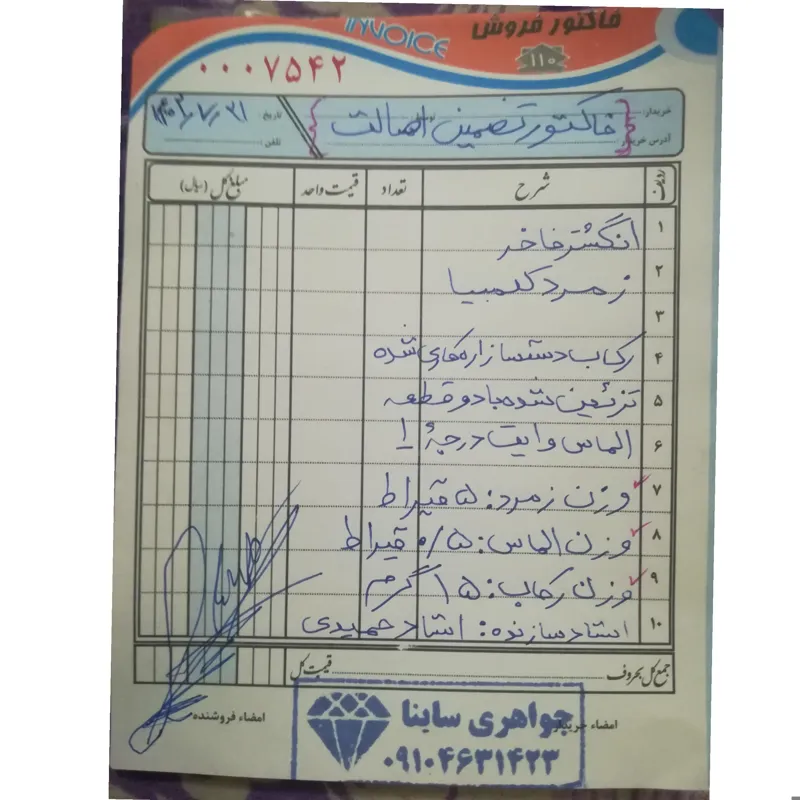 فاکتور فروش
INVOICE
۱۱۰
۰۰۰۷۵۴۲
خریدار:
فاکتور تضمین اصالت
تاریخ: ۱۴۰۳/۷/۲۱
آدرس خریدار:
تلفن:
ردیف شرح تعداد قیمت واحد مبلغ کل (ریال)
۱ انگشتر فاخر
۲ زمرد کلمبیا
۳
۴ رکاب دستساز اره کاری شده
۵ تزئین شده با دو قطعه
۶ الماس وایت درجهٔ ۱
۷ وزن زمرد: ۵ قیراط
۸ وزن الماس: ۰/۵ قیراط
۹ وزن رکاب: ۱۵ گرم
۱۰ استاد سازنده: استاد حمیدی
جمع کل بحروف قیمت کل
امضاء خریدار
امضاء فروشنده
جواهری ساینا
۰۹۱۰۴۶۳۱۴۲۳